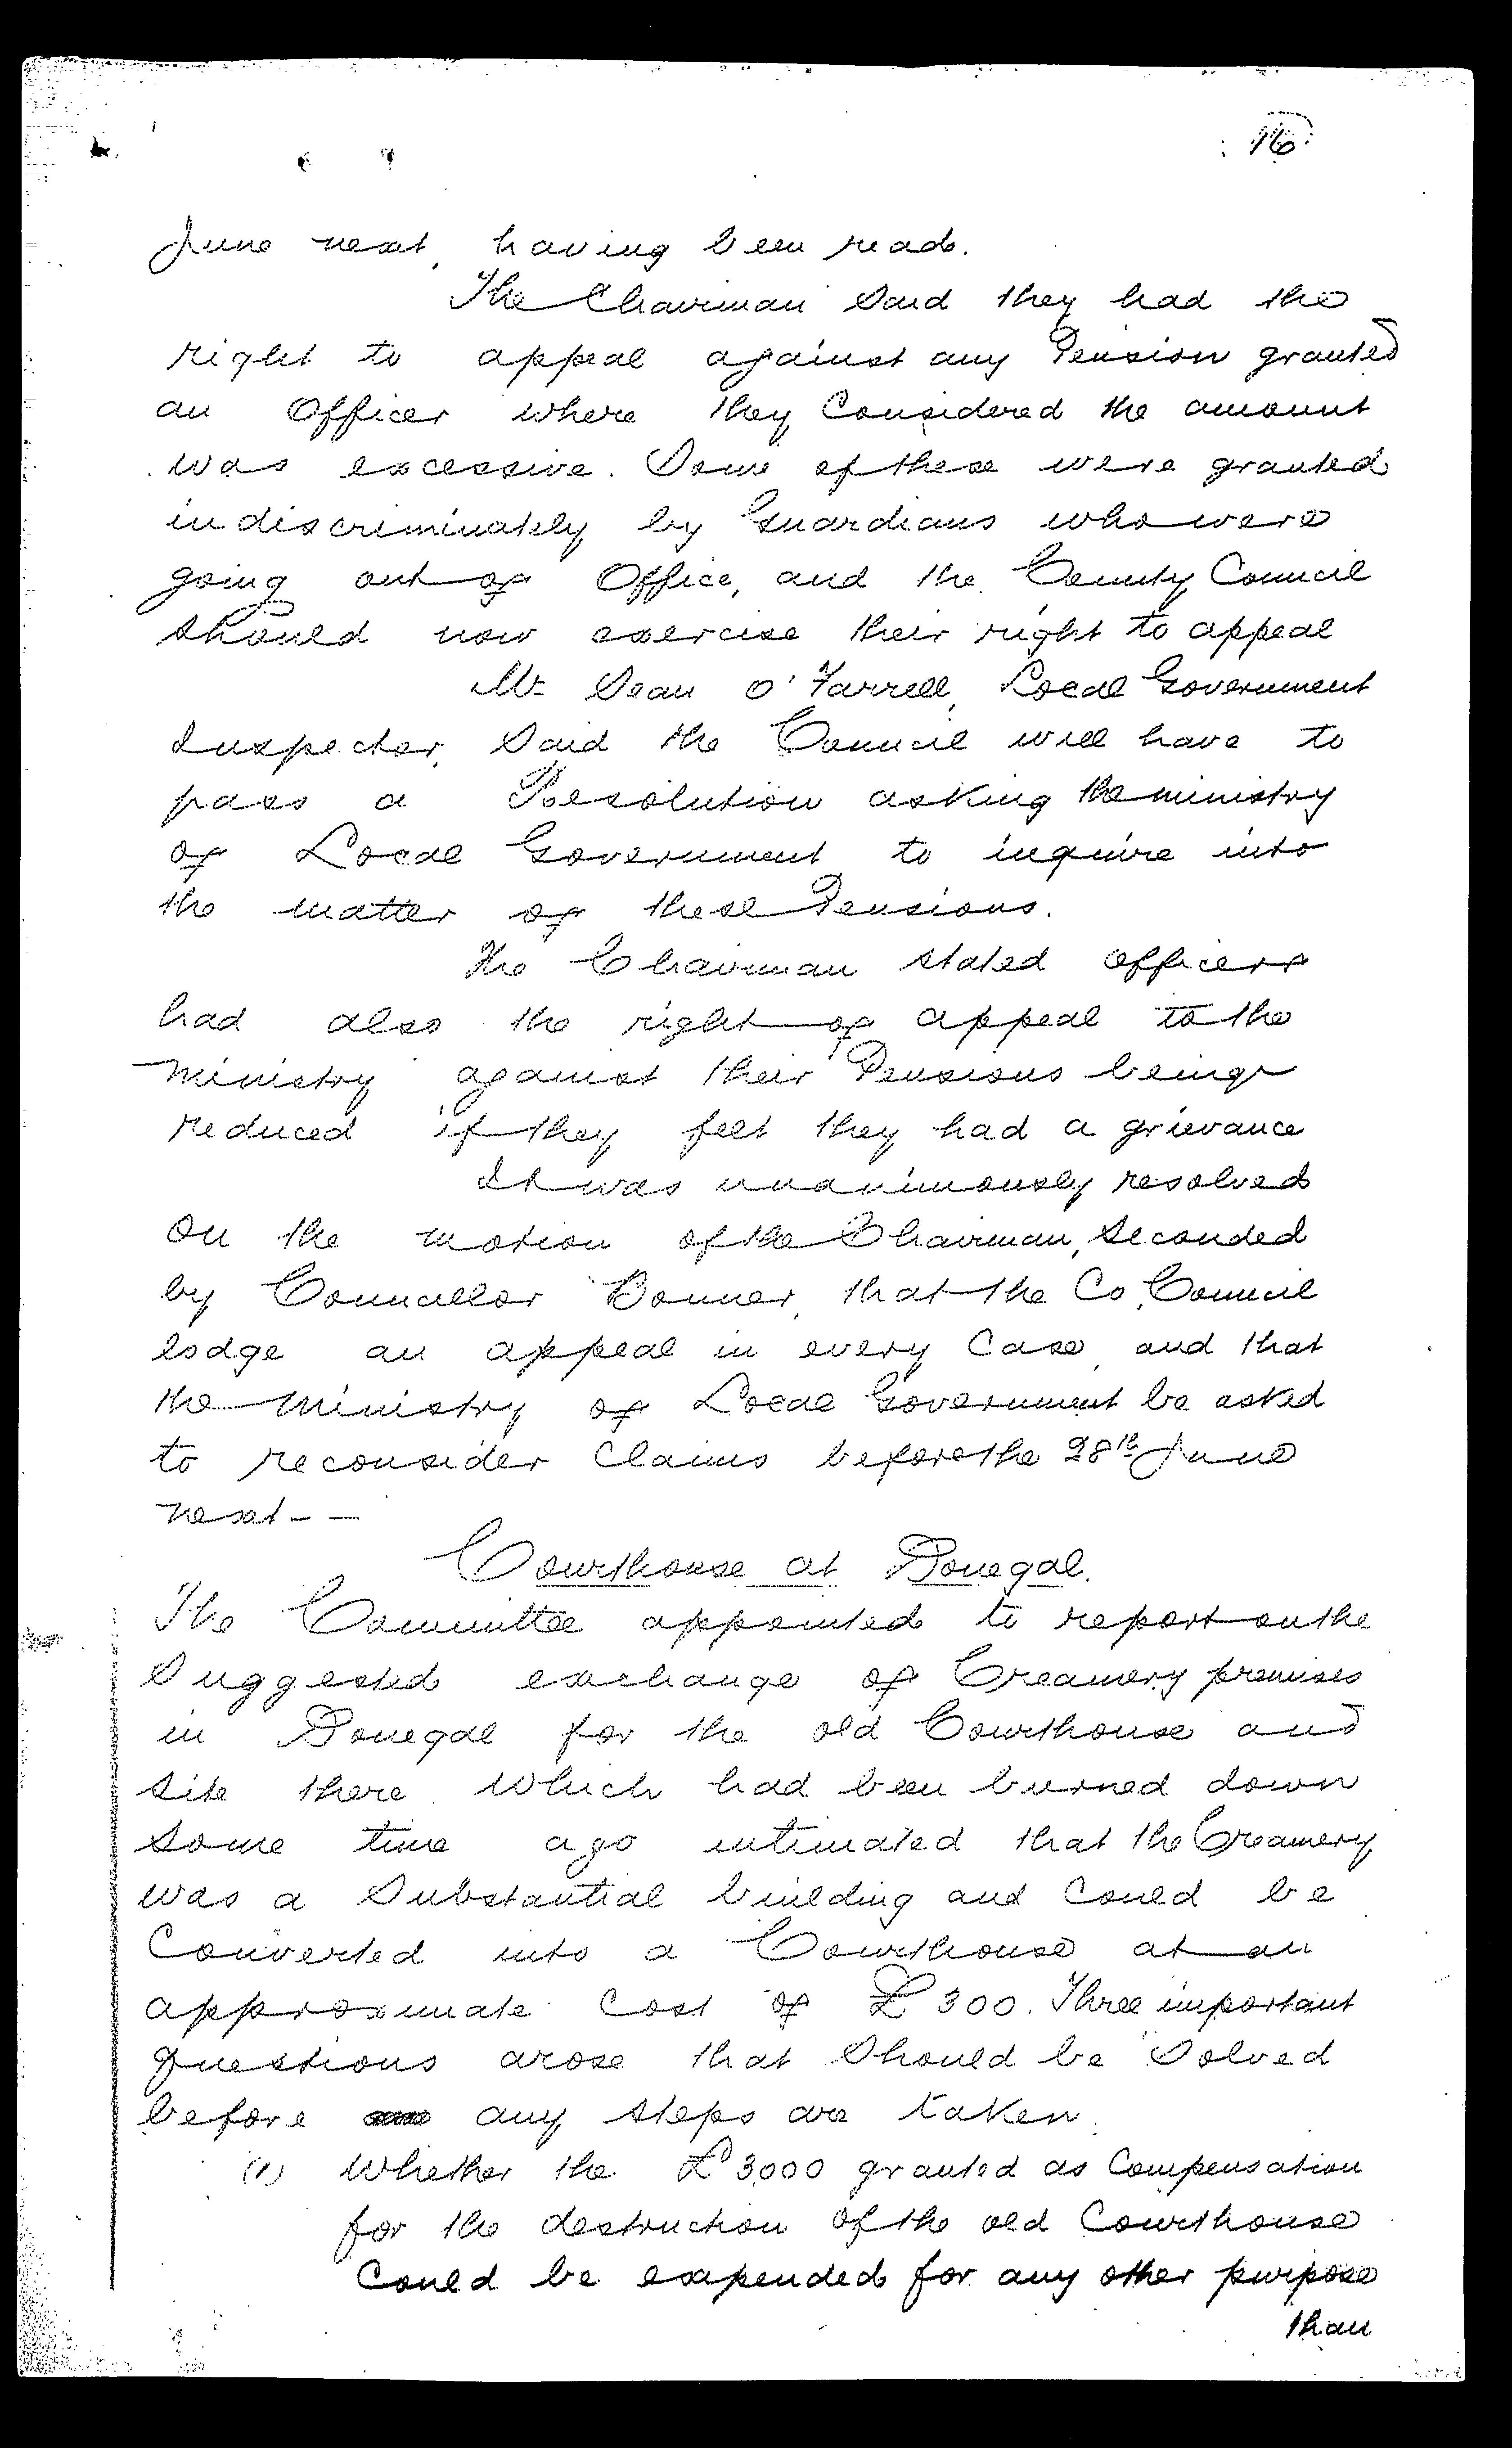 16
June next, having been read.
The Chairman said they had the
right to appeal against any Pension granted
an Officer where they Considered the amount
was excessive. Some of these were granted
indiscriminately by Guardians who were
going out of Office, and the County Council
should now exercise their right to appeal
Mr Sean O'Farrell, Local Government
Inspector, Said the Council will have to
pass a Resolution asking the ministry
of Local Government to inquire into
the matter of these Pensions.
The Chairman stated officers
had also the right of appeal to the
Ministry against their Pensions being
reduced if they felt they had a grievance
It was unanimously resolved
on the motion of the Chairman, Seconded
by Councillor Bonner, that the Co. Council
lodge an appeal in every Case, and that
the Ministry of Local Government be asked
to reconsider Claims before the 28th June
next - -
Courthouse at Donegal.
The Committee appointed to report on the
Suggested exchange of Creamery premises
in Donegal for the old Courthouse and
site there which had been burned down
some time ago intimated that the Creamery
was a Substantial building and Could be
Converted into a Courthouse at an
approximate Cost of £300. Three important
questions arose that Should be Solved
before any steps are taken.
(1) Whether the £3,000 granted as Compensation
for the destruction of the old Courthouse
Could be expended for any other purpose
than